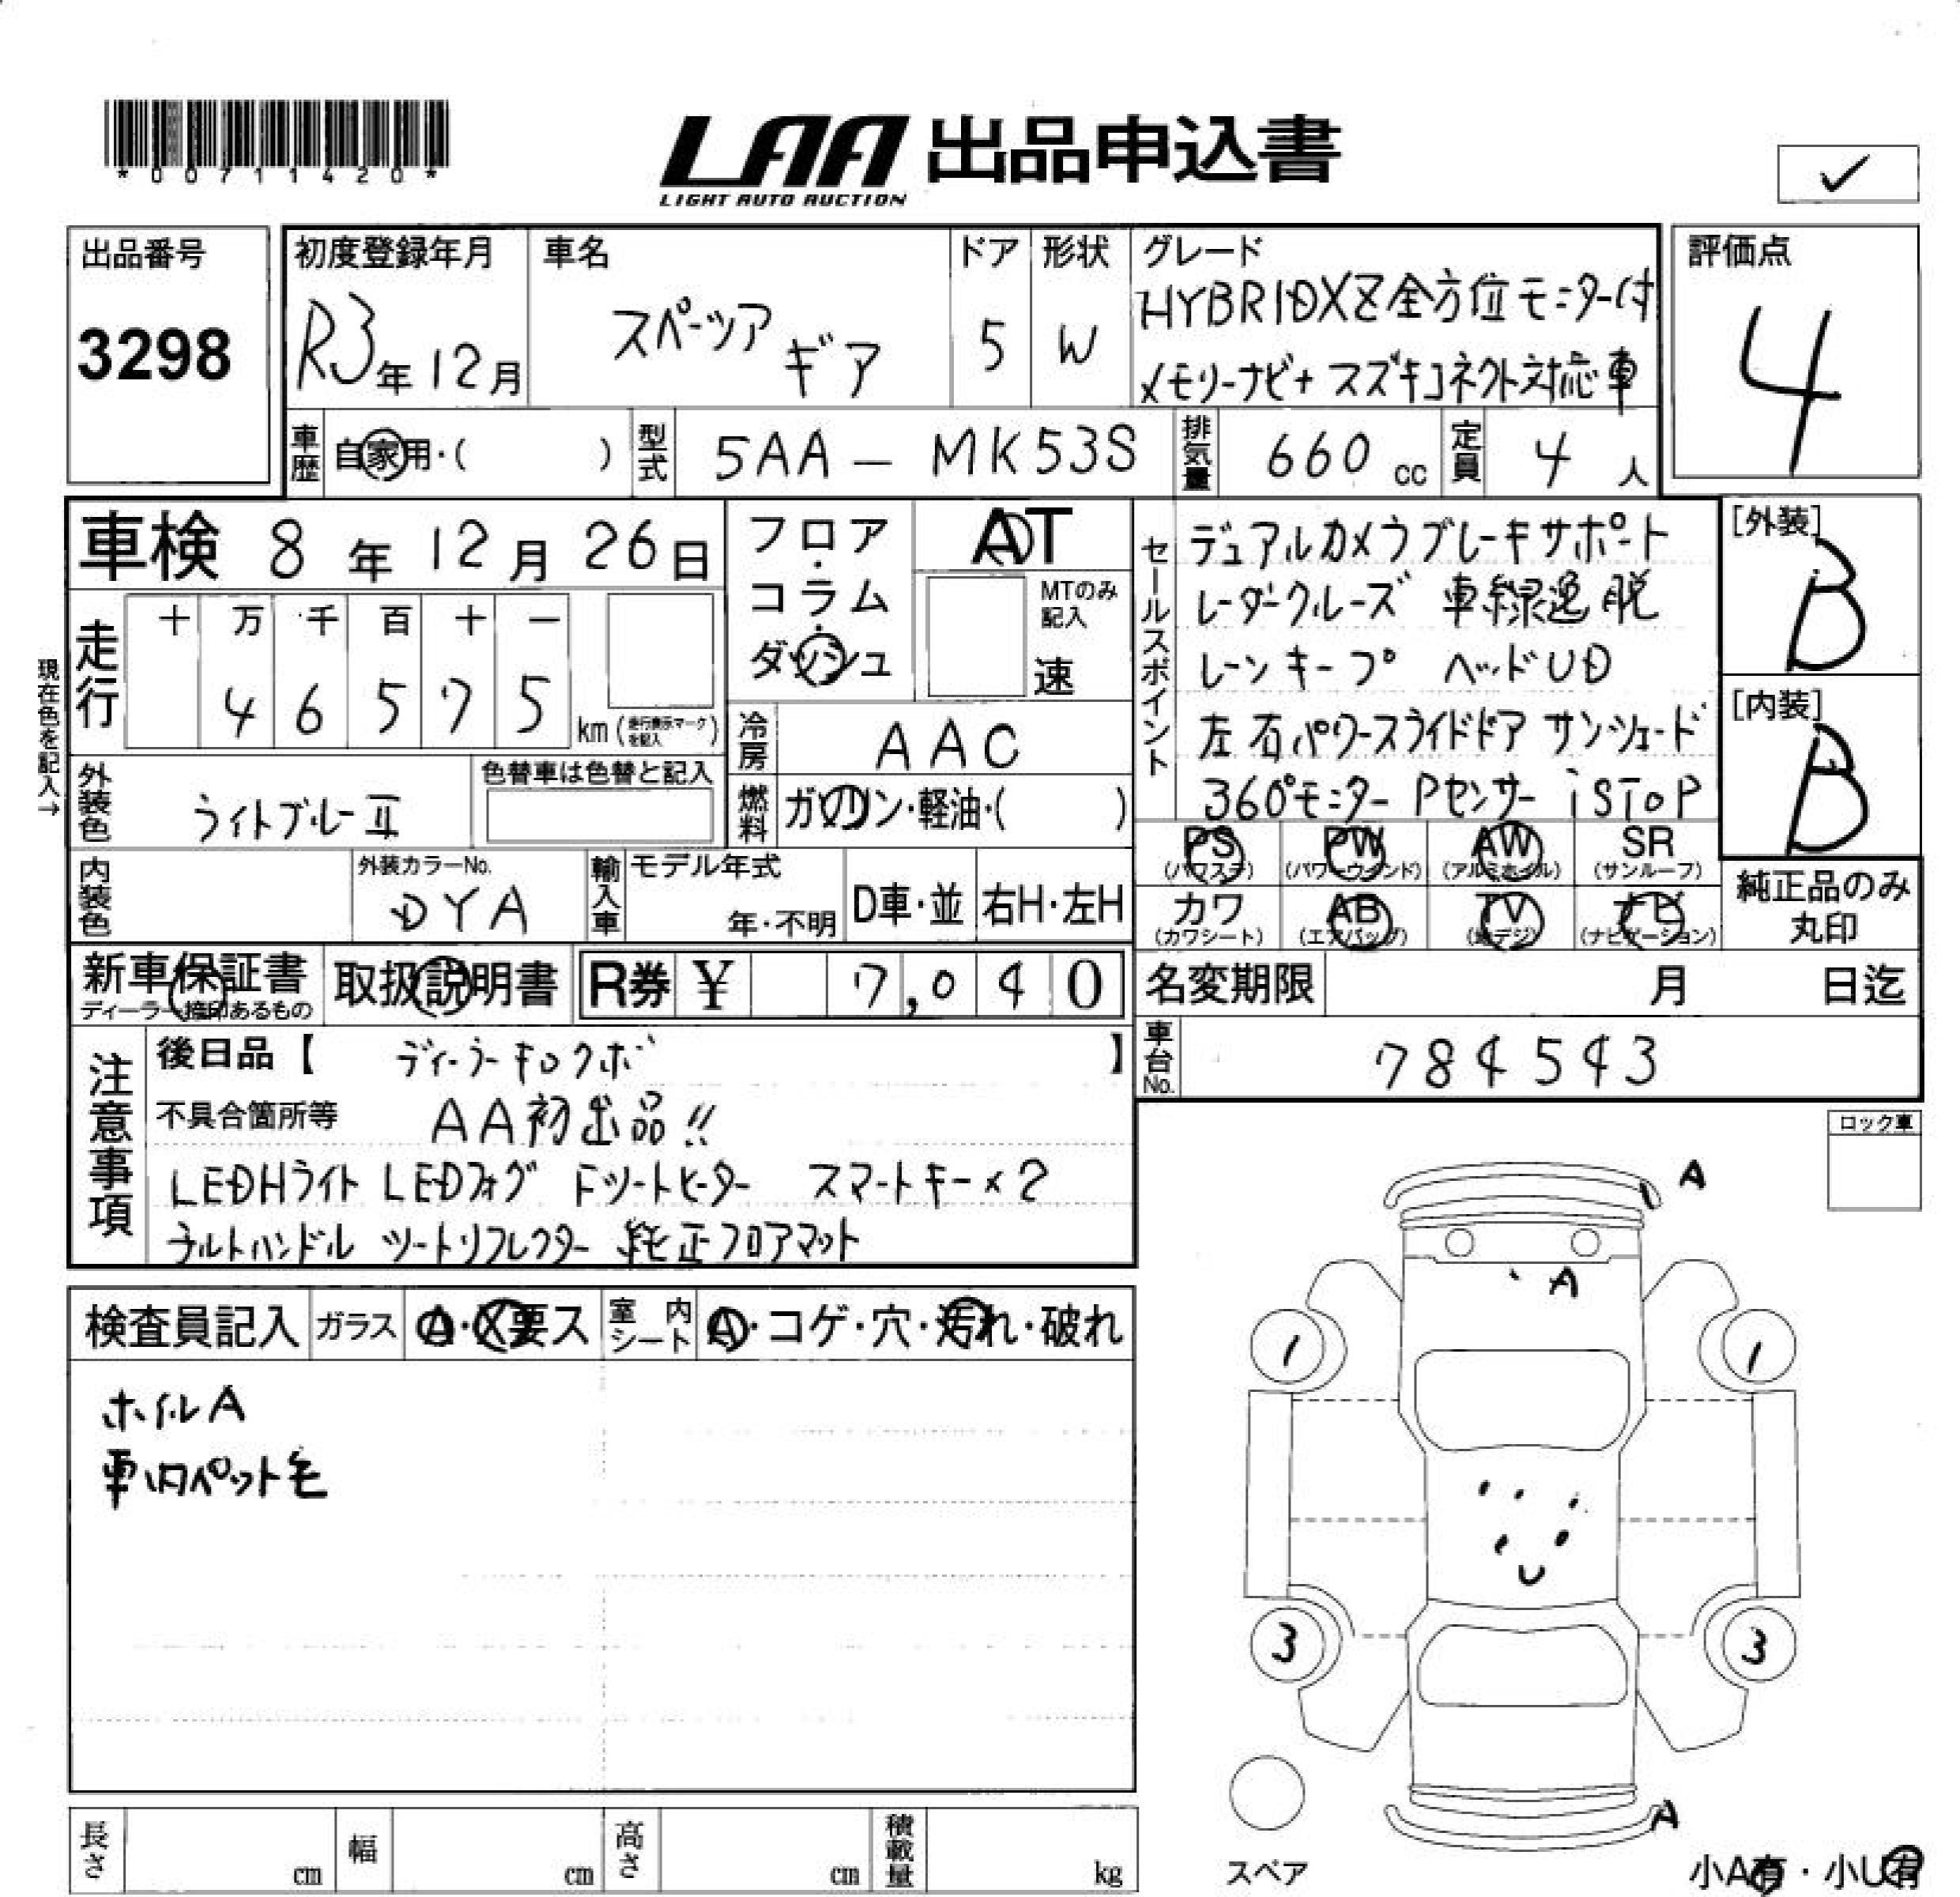 *00711420*
LAA 出品申込書
LIGHT AUTO AUCTION
✓
出品番号
3298
初度登録年月
R3年12月
車名
スペーシア ギア
ドア
5
形状
W
グレード
HYBRIDXZ全方位モニター付
メモリーナビ+スズキコネクト対応車
評価点
4
車歴
自家用・( )
型式
5AA - MK53S
排気量
660 cc
定員
4 人
車検 8年 12月 26日
現在色を記入→
走行
十 万 千 百 十 一
4 6 5 7 5
km (走行表示マークを記入)
フロア・コラム・ダッシュ
AT
MTのみ記入
速
冷房
AAC
燃料
ガソリン・軽油・( )
外装色
ライトブルーⅡ
色替車は色替と記入
内装色
外装カラーNo.
DYA
輸入車
モデル年式
年・不明
D車・並
右H・左H
セールスポイント
デュアルカメラブレーキサポート
レーダークルーズ 車線逸脱
レーンキープ ヘッドUD
左右パワースライドドア サンシェード
360°モニター Pセンサー iSToP
[外装]
B
[内装]
B
PS (パワステ)
PW (パワーウインド)
AW (アルミホイル)
SR (サンルーフ)
カワ (カワシート)
AB (エアバッグ)
TV (地デジ)
ナビ (ナビゲーション)
純正品のみ丸印
新車保証書
ディーラー捺印あるもの
取扱説明書
R券 ¥ 7,040
名変期限 月 日迄
車台No.
784543
注意事項
後日品【 ディーラーキロクボ 】
不具合箇所等 AA初出品!!
LEDHライト LEDフォグ Fシートヒーター スマートキー×2
ウルトハンドル シートリフレクター 純正フロアマット
ロック車
検査員記入
ガラス
A・X要ス
室内シート
A・コゲ・穴・汚れ・破れ
ホイルA
車内ペット毛
A
A
1
1
U
3
3
A
スペア
小A有・小U有
長さ cm
幅 cm
高さ cm
積載量 kg